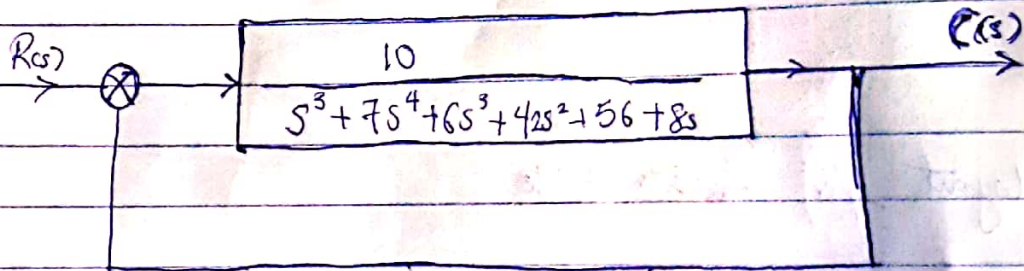 R(s)
C(s)
10
s³ + 7s⁴ + 6s³ + 42s² + 56 + 8s